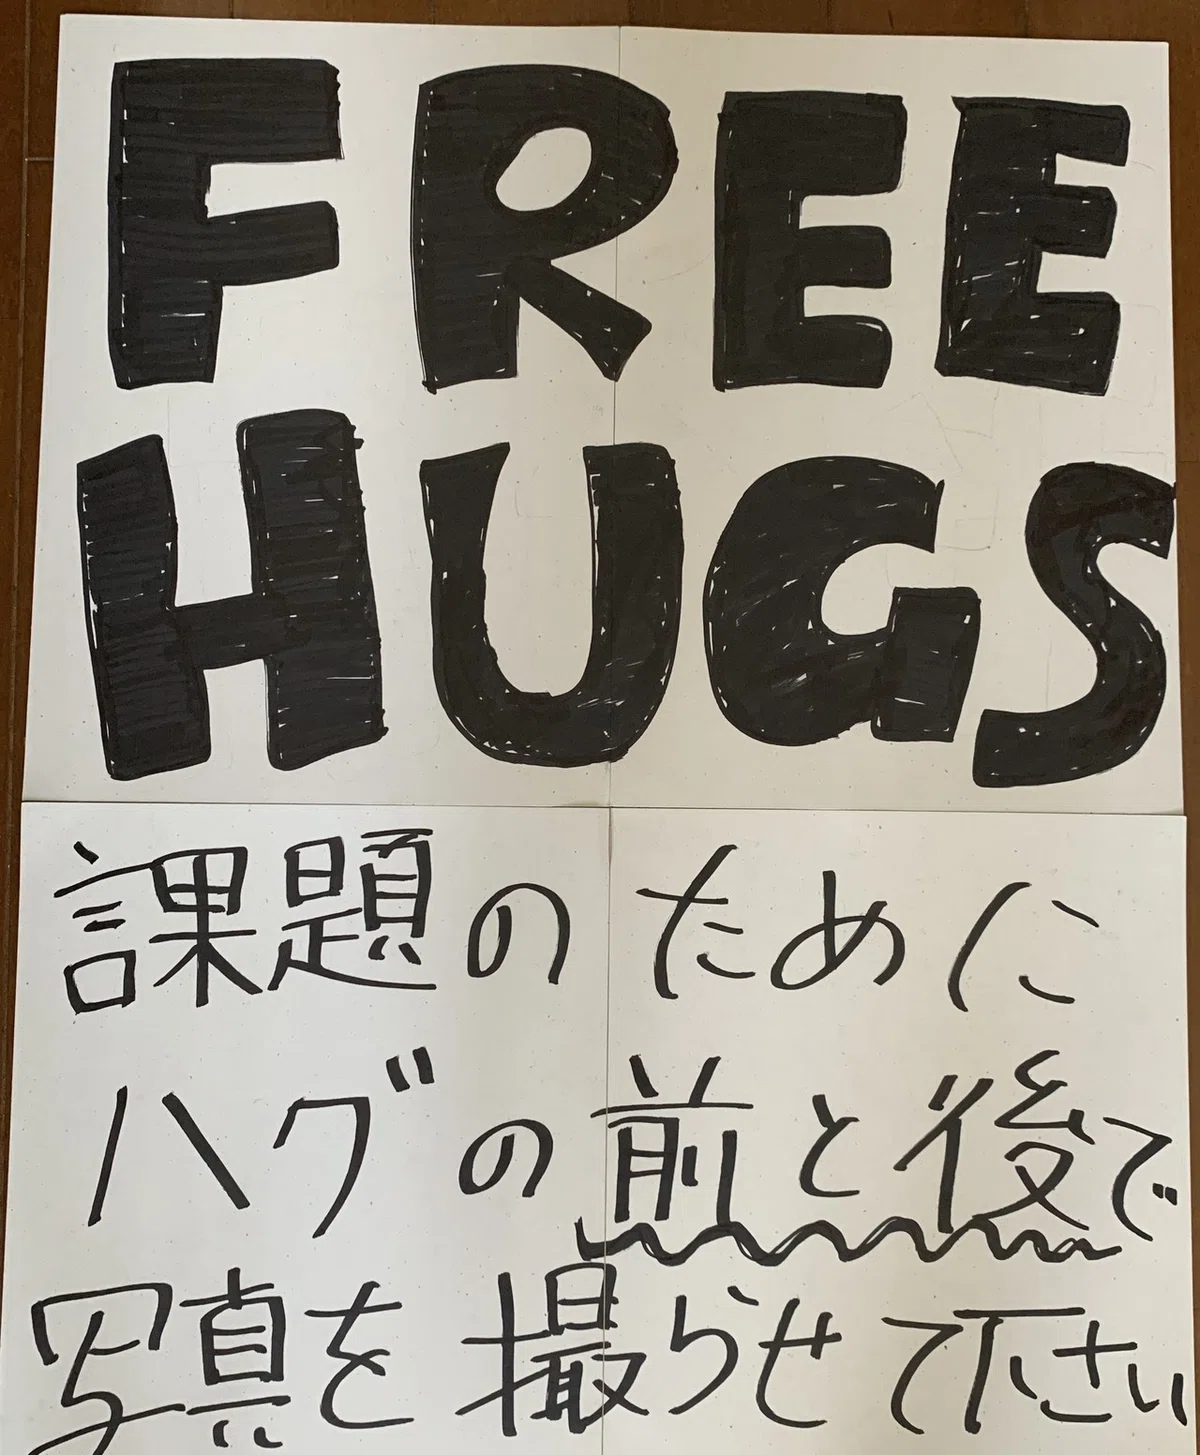 FREE
HUGS
課題のために
ハグの前と後で
写真を撮らせて下さい